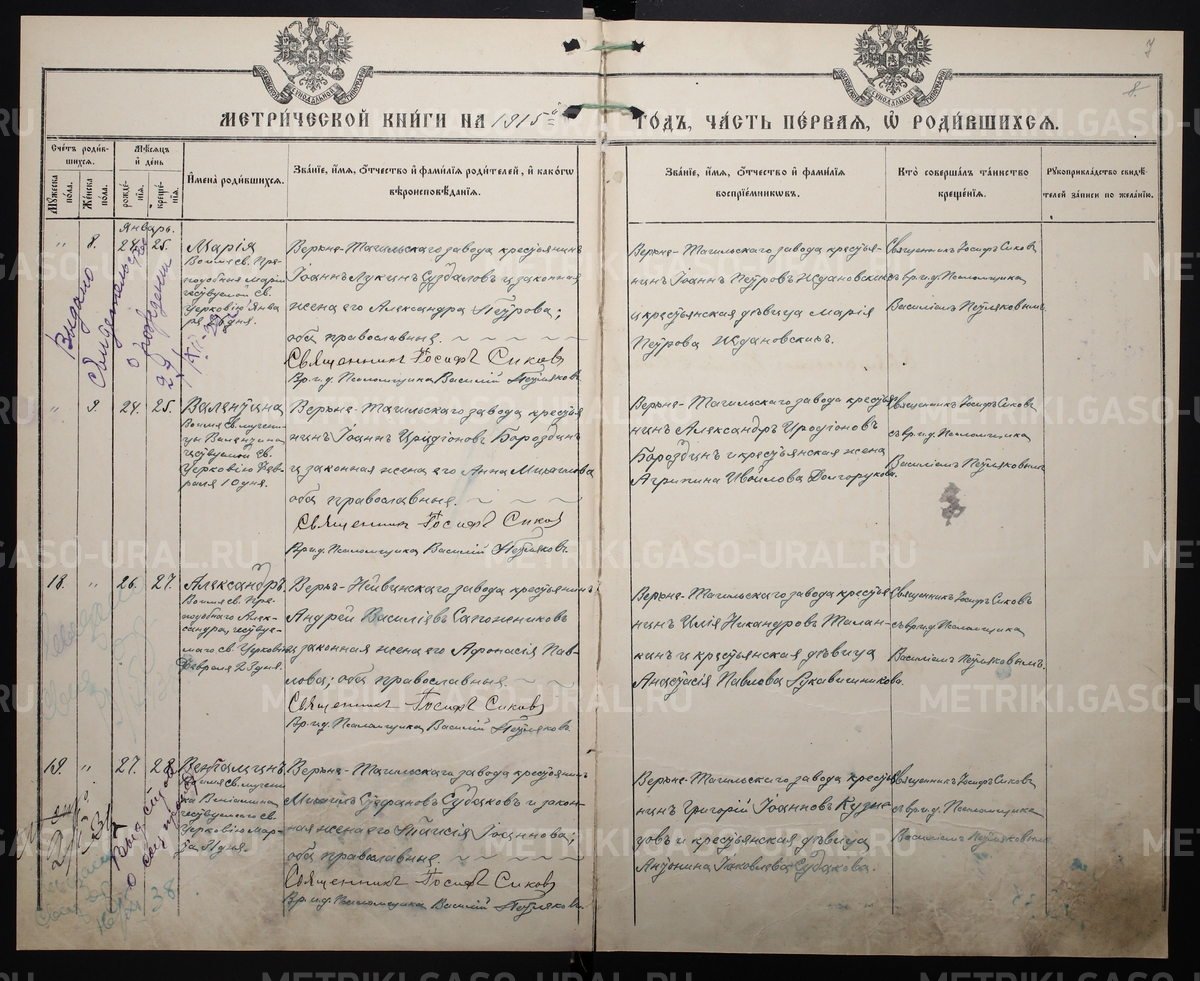 7
8
МЕТРИ́ЧЕСКОЙ КНИ́ГИ НА 1915й
ГО́ДЪ, ЧА́СТЬ ПЕ́РВАЯ, Ѡ РОДИ́ВШИХСЯ.
Сче́тъ роди́вшихся.
Мѣ́сяцъ и де́нь
Му́жеска по́ла.
Же́нска по́ла.
рожде́нія.
креще́нія.
И҆мена̀ роди́вшихся.
Зва́ніе, и҆́мя, ѻ҆́тчество и҆ фами́лія роди́телей, и҆ како́гѡ
вѣроисповѣ́данія.
Зва́ніе, и҆́мя, ѻ҆́тчество и҆ фами́лія
воспріе́мниковъ.
Кто̀ соверша́лъ та́инство
креще́нія.
Рꙋкоприкла́дство свидѣ́-
телей за́писи по жела́нію.
Январь.
" 8. 24. 25.
Марія
Во имя св. Пре-
подобныя Маріи
чествуемой св.
Церковію Янва
ря 26 дня.
Верхне-Тагильскаго завода крестьянинъ
Іоаннъ Лукинъ Суздаловъ и законная
жена его Александра Петрова;
оба православные.
Священникъ Іосифъ Сиковъ
Вр. и. д. Псаломщика Василій Петляковъ
Верхне-Тагильскаго завода крестья-
нинъ Іоаннъ Петровъ Ждановскихъ
и крестьянская дѣвица Марія
Петрова Ждановскихъ.
Священникъ Іосифъ Сиковъ
съ вр. и д. Псаломщика
Василіемъ Петляковымъ.
Выдано
свидетельство
о рождении
" 9. 24. 25.
Валентина
Во имя св. мучени-
цы Валентины
чествуемой св.
Церковію Фев-
раля 10 дня.
Верхне-Тагильскаго завода крестья
нинъ Іоаннъ Иродіоновъ Бороздинъ
и законная жена его Анна Михаилова
оба православные.
Священникъ Іосифъ Сиковъ
Вр. и. д. Псаломщика Василій Петляковъ.
Верхне-Тагильскаго завода крестья
нинъ Александръ Иродіоновъ
Бороздинъ и крестьянская жена
Агрипина Ивойлова Долгорукова.
Священникъ Іосифъ Сиковъ
съ вр. и д. Псаломщика
Василіемъ Петляковымъ.
18. " 26. 27.
Александръ.
Во имя св. Пре-
подобнаго Алек-
сандра, чествуе-
маго св. Церковію
Февраля 23 дня.
Верхъ-Нейвинскаго завода крестьянинъ
Андрей Василіевъ Сапожниковъ
и законная жена его Афонасія Пав-
лова; оба православные.
Священникъ Іосифъ Сиковъ
Вр. и. д. Псаломщика Василій Петляковъ
Верхне-Тагильскаго завода крестья
нинъ Илія Никандровъ Талан-
кинъ и крестьянская дѣвица
Анастасія Павлова Рукавишникова.
Священникъ Іосифъ Сиковъ
съ вр. и д. Псаломщика
Василіемъ Петляковымъ.
19. " 27. 28.
Веніаминъ.
Во имя св. мучени
ка Веніамина,
чествуемаго св.
Церковію Мар-
та 31 дня.
Верхне-Тагильскаго завода крестьянинъ
Михаилъ Стефановъ Судаковъ и закон-
ная жена его Таисія Іоаннова;
оба православные.
Священникъ Іосифъ Сиковъ
Вр. и. д. Псаломщика Василій Петляковъ.
Верхне-Тагильскаго завода крестья
нинъ Григорій Іоанновъ Кузне
цовъ и крестьянская дѣвица
Антонина Іаковлева Судакова.
Священникъ Іосифъ Сиковъ
съ вр. и д. Псаломщика
Василіемъ Петляковымъ
38
METRIKI.GASO-URAL.RU